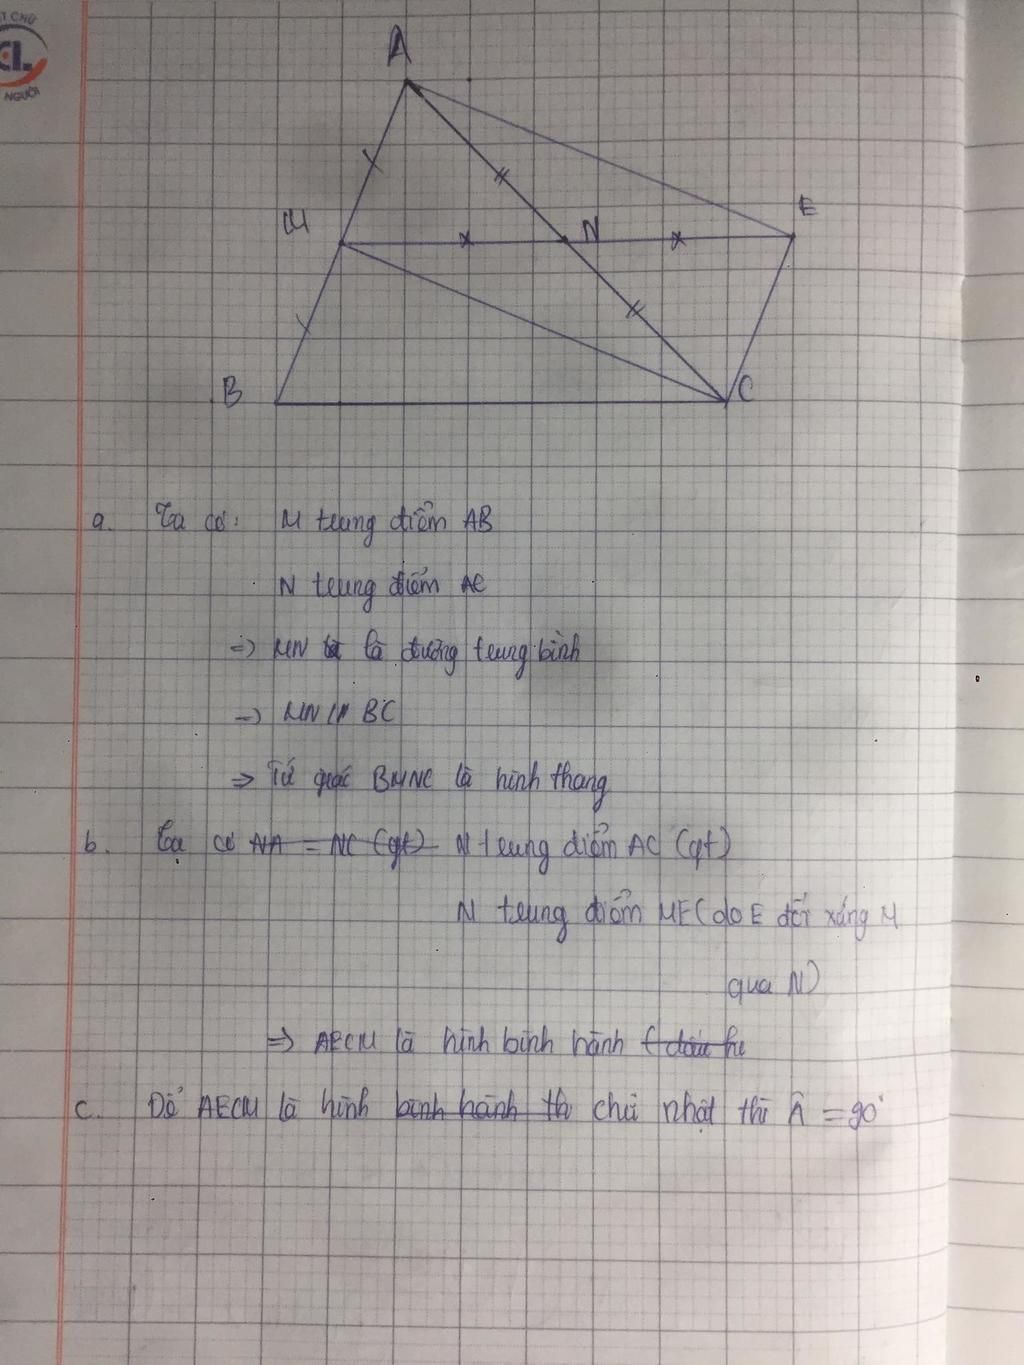 T CHỮ
CL
NGƯỜI
A
M
N
E
B
C
a. Ta có: M trung điểm AB
N trung điểm AC
=> MN là đường trung bình
=> MN // BC
=> Tứ giác BMNC là hình thang
b. Ta có NA = NC (gt) N trung điểm AC (gt)
N trung điểm ME (do E đối xứng M
qua N)
=> AECM là hình bình hành
c. Để AECM là hình bình hành thì chữ nhật thì Â = 90°